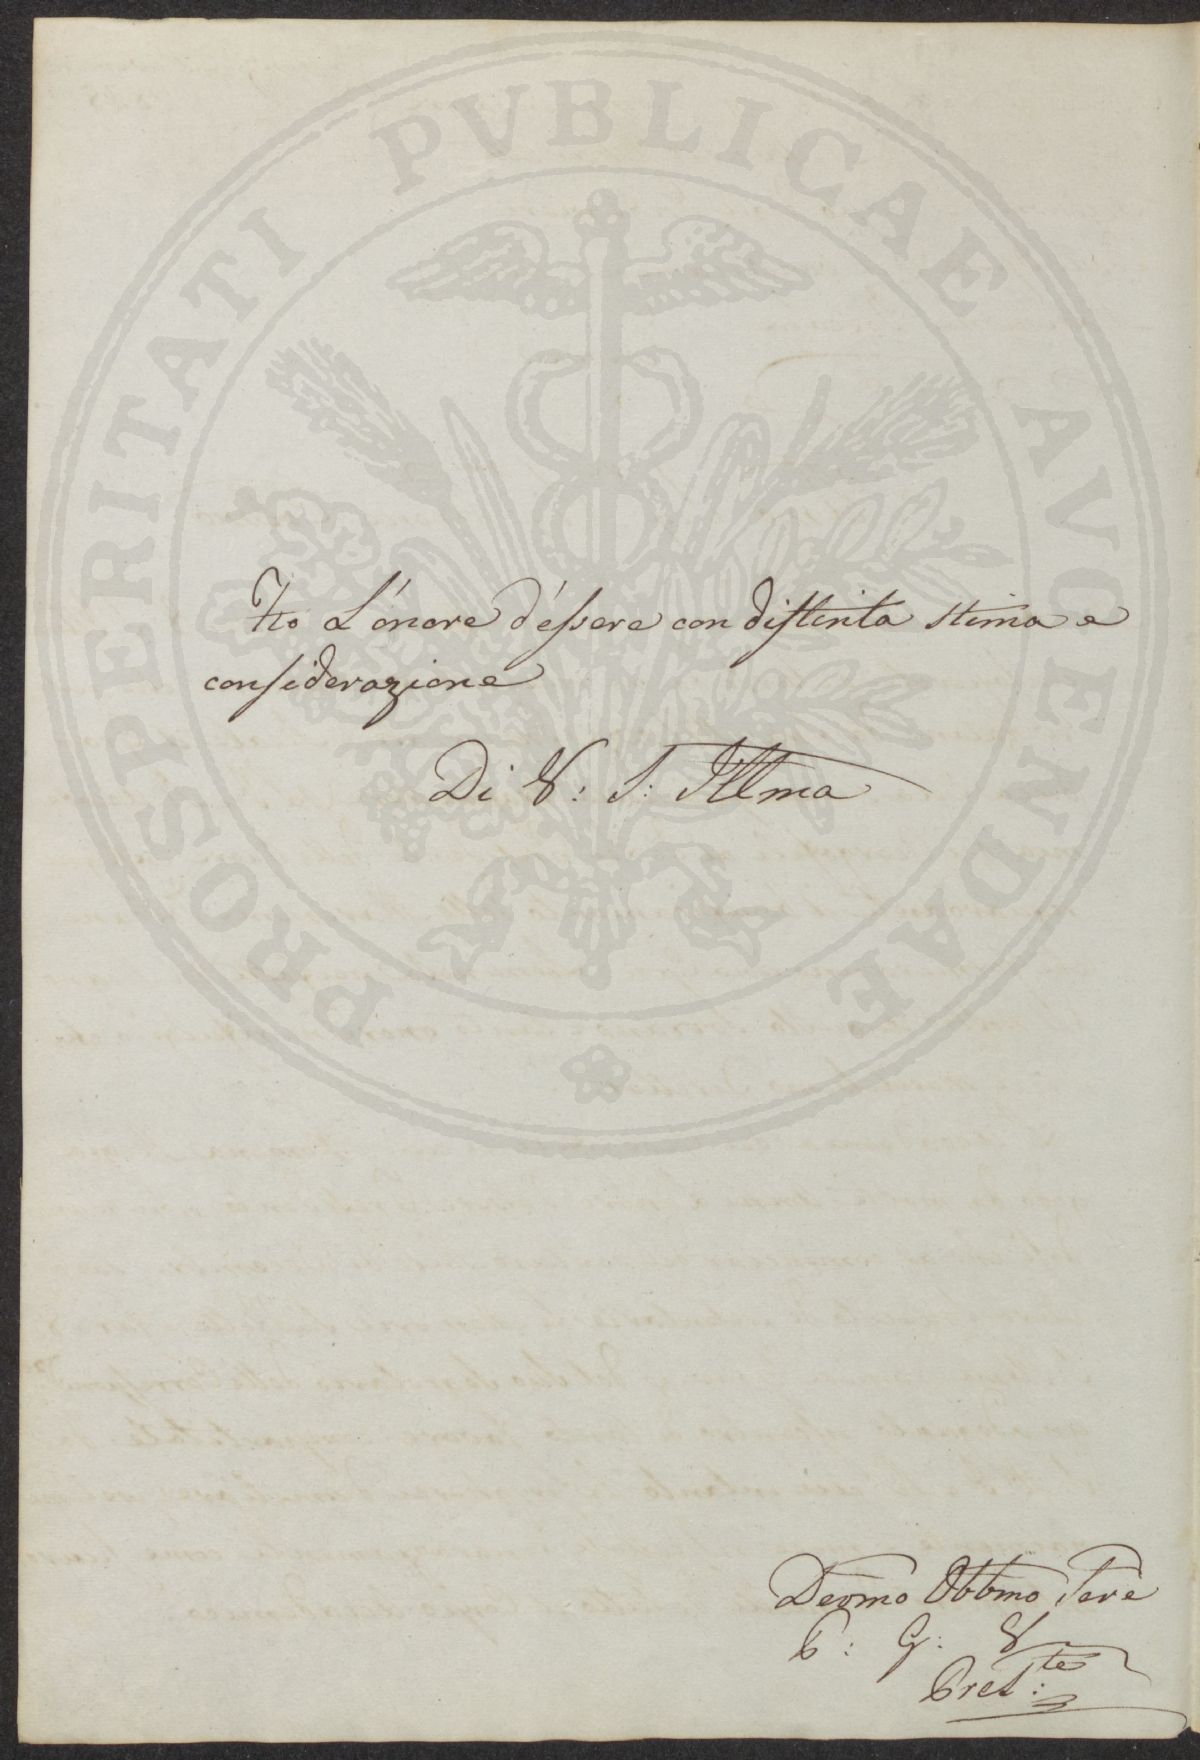 PROSPERITATI PVBLICAE AVGENDAE
Ho L'onore d'essere con distinta stima e
considerazione
Di V: S: Illma
Devmo Obbmo Sere
P: G: V
Pres:te